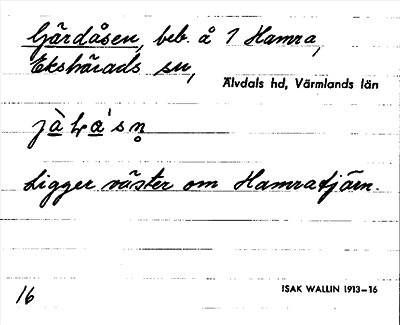 Gärdåsen, beb. å 7 Hamra,
Ekshärads sn,
Älvdals hd, Värmlands län
Ligger väster om Hamratjärn.
16
ISAK WALLIN 1913–16